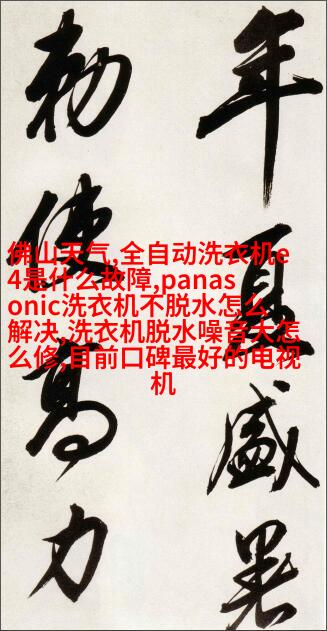 年夏盛暑
勅使高力
佛山天气,全自动洗衣机e
4是什么故障,panas
onic洗衣机不脱水怎么
解决,洗衣机脱水噪音大怎
么修,目前口碑最好的电视
机